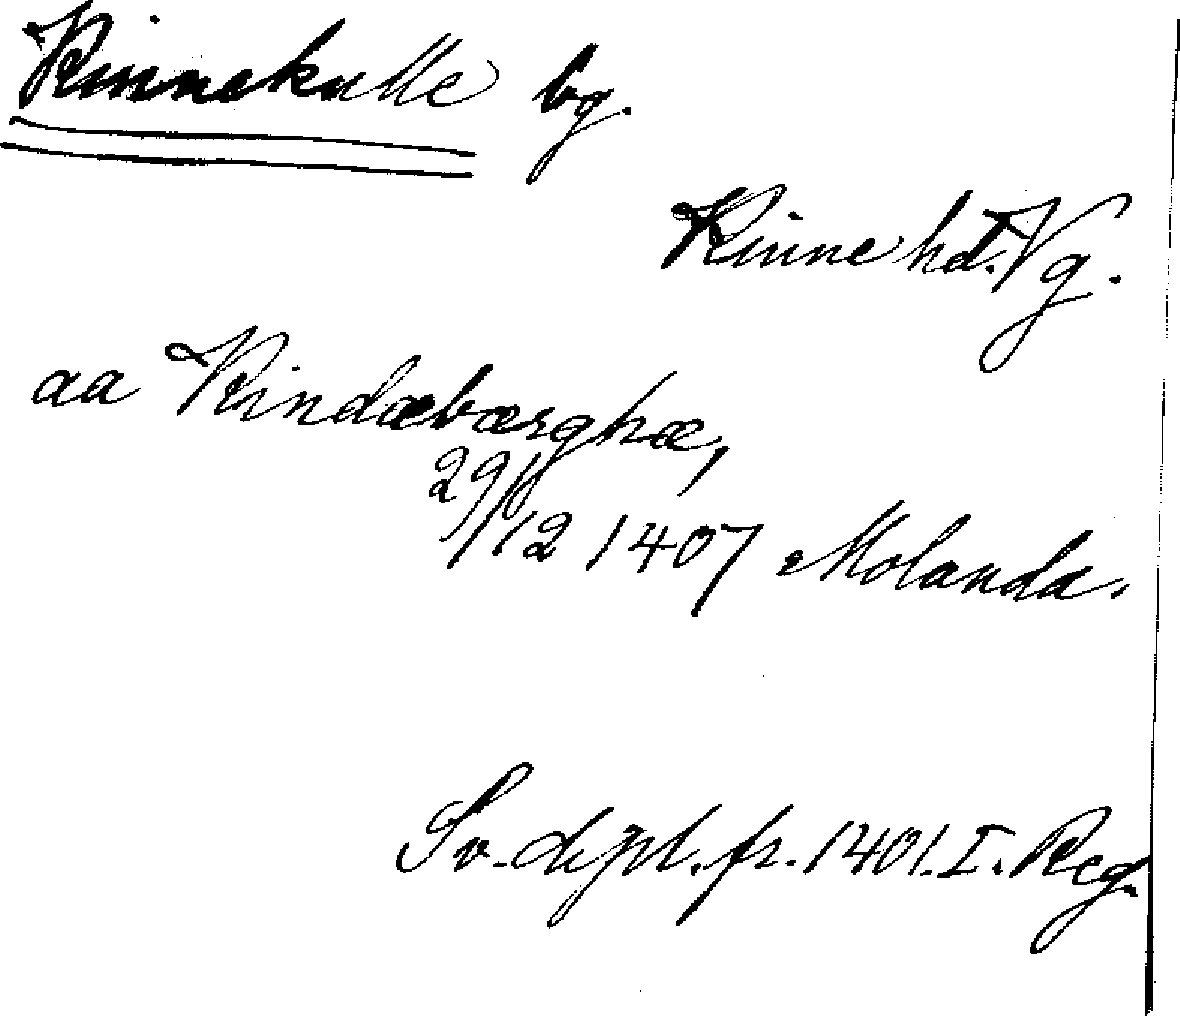 Kinnekulle bg.
Kinne hd. Vg.
aa Kindæbærghæ,
29/12 1407 Molanda.
Sv. dipl. fr. 1401. I. Reg.